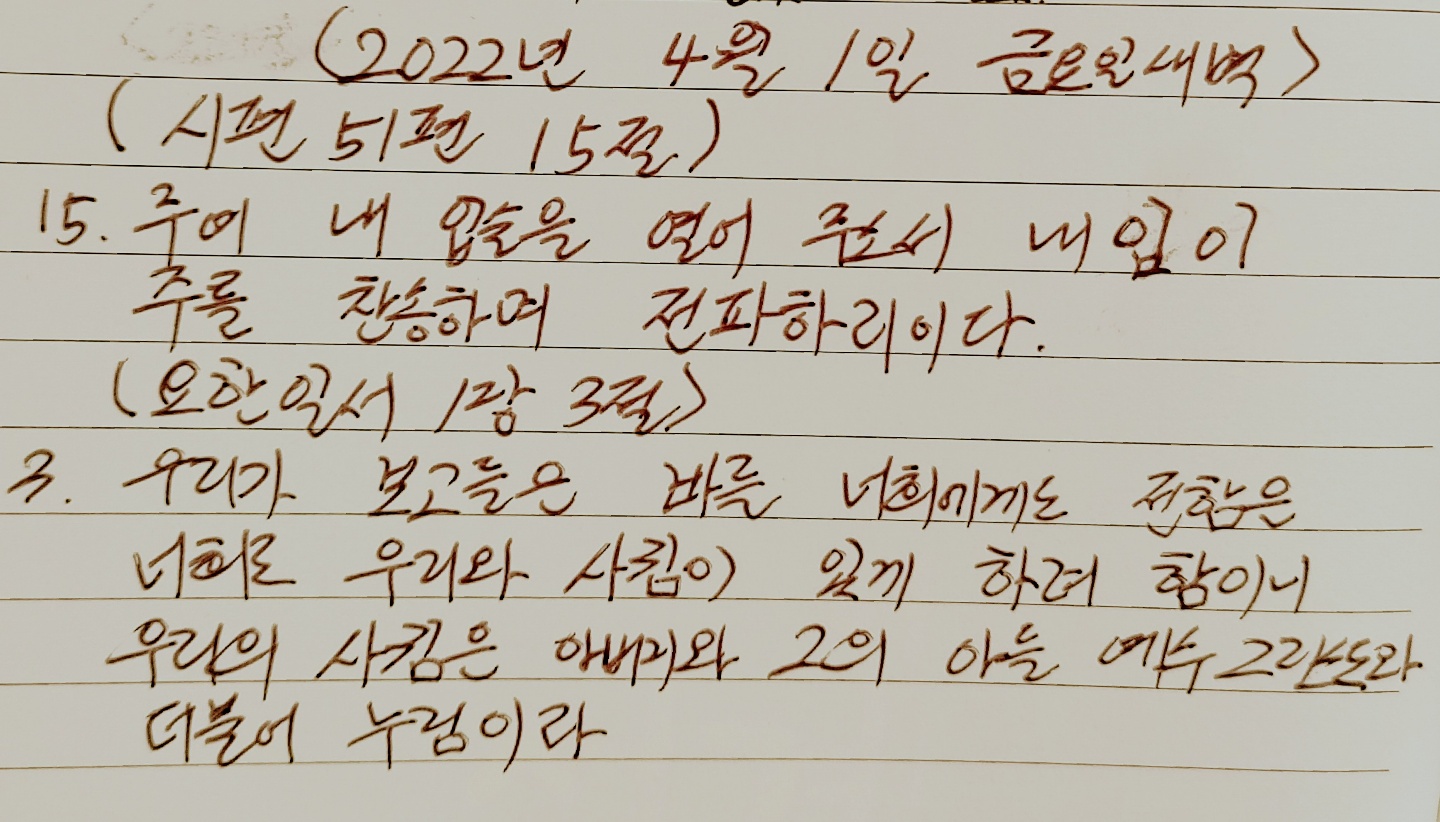 (2022년 4월 1일 금요일새벽)
(시편 51편 15절)
15. 주여 내 입술을 열어 주소서 내 입이
주를 찬송하며 전파하리이다.
(요한일서 1장 3절)
3. 우리가 보고들은 바를 너희에게도 전함은
너희로 우리와 사귐이 있게 하려 함이니
우리의 사귐은 아버지와 그의 아들 예수그리스도와
더불어 누림이라